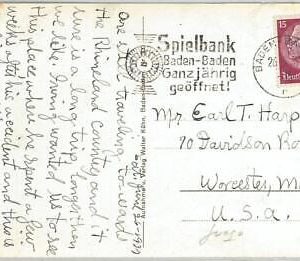 One still traveling towards
the Rhineland country and it
sure is a long trip, longer than
we like. Irving wanted us to see
this place where he spent a few
weeks after his accident and this
Aufnahmen, Verlag Walter Kühn, Baden
Spielbank
Baden-Baden
Ganzjährig
geöffnet!
15
BADEN
26
Mr. Earl T. Harp
70 Davidson Ro
Worcester, M
U.S.A.